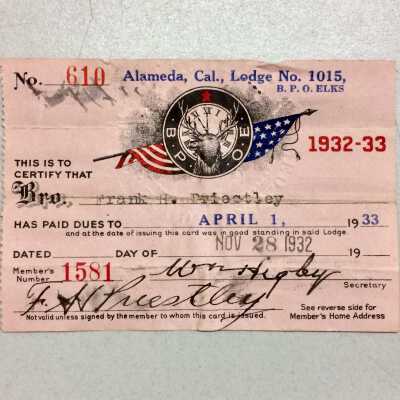 No. 610 Alameda, Cal., Lodge No. 1015,
B. P. O. ELKS
B P O E
1932-33
THIS IS TO
CERTIFY THAT
Bro. Frank H. Priestley
HAS PAID DUES TO APRIL 1, 1933
and at the date of issuing this card was in good standing in said Lodge.
NOV 28 1932
DATED DAY OF 19
Member's
Number 1581 Wm Higby
Secretary
F. H. Priestley
See reverse side for
Member's Home Address
Not valid unless signed by the member to whom this card is issued.